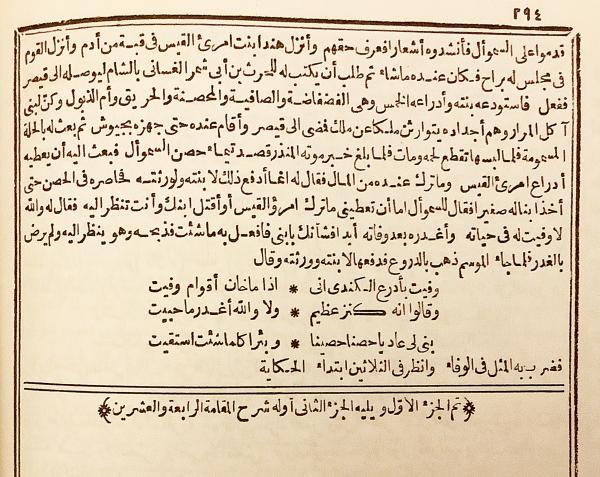 ٢٩٤
قدموا على السموأل فأنشدوه أشعارا فعرف حقهم وأنزل هندا بنت امرئ القيس فى قبة من أدم وأنزل القوم
فى مجلس له براح فكان عنده ماشاء ثم طلب أن يكتب له للحرث بن أبى شمر الغسانى بالشام ليوصله الى قيصر
ففعل فاستودعه بنته وأدراعه الخمس وهى الفضفاضة والصافية والمحصنة والخريق وأم الذيول وكن لبنى
آكل المرار وهم أجداده يتوارثن ملكا عن ملك فمضى الى قيصر وأقام عنده حتى جهزه بجيوش ثم بعث له بالحلة
المسمومة فلما لبسها تقطع لحمه ومات فلما بلغ خبر موته المنذر قصد تيماء حصن السموأل فبعث اليه أن يعطيه
أدراع امرئ القيس وماترك عنده من المال فقال له انما أدفع ذلك لابنته ولورثته فحاصره فى الحصن حتى
أخذ ابنا له صغيرا فقال للسموأل اما أن تعطينى ماترك امرؤ القيس أو أقتل ابنك وأنت تنظر اليه فقال له والله
لا وفيت له فى حياته وأغدره بعد وفاته أبدا فشأنك بابنى فافعل به ماشئت فذبحه وهو ينظر اليه ولم يرض
بالغدر فلما جاء الموسم ذهب بالدروع فدفعها لابنته وورثته وقال
وفيت بأدرع الكندى انى * اذا ماخان أقوام وفيت
وقالوا انه كنز عظيم * ولا والله أغدر ماحييت
بنى لى عاديا حصنا حصينا * وبئرا كلما شئت استقيت
فضرب به المثل فى الوفاء وانظر فى الثلاثين ابتداء الحكاية
تم الجزء الاول ويليه الجزء الثانى أوله شرح المقامة الرابعة والعشرين